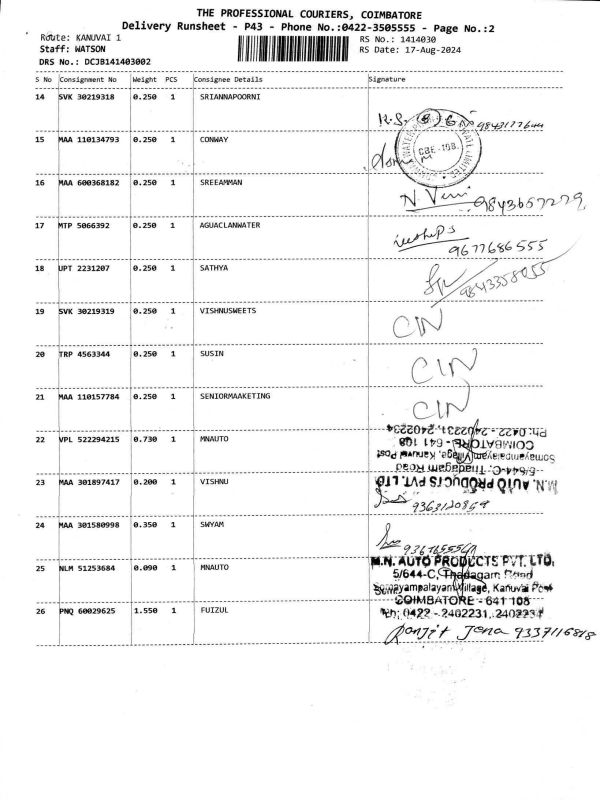 THE PROFESSIONAL COURIERS, COIMBATORE
Delivery Runsheet - P43 - Phone No.:0422-3505555 - Page No.:2
Route: KANUVAI 1
RS No.: 1414030
Staff: WATSON
RS Date: 17-Aug-2024
DRS No.: DCJB141403002
S No Consignment No Weight PCS Consignee Details Signature
14 SVK 30219318 0.250 1 SRIANNAPOORNI
15 MAA 110134793 0.250 1 CONWAY
CBE-108.
16 MAA 600368182 0.250 1 SREEAMMAN
9843657279
17 MTP 5066392 0.250 1 AGUACLANWATER
9677686555
18 UPT 2231207 0.250 1 SATHYA
9843358055
19 SVK 30219319 0.250 1 VISHNUSWEETS CIN
20 TRP 4563344 0.250 1 SUSIN CIN
21 MAA 110157784 0.250 1 SENIORMAAKETING CIN
22 VPL 522294215 0.730 1 MNAUTO
M.N. AUTO PRODUCTS PVT. LTD.
5/644-C, Thadagam Road
Somayampalayam Village, Kanuvai Post
COIMBATORE - 641 108
Ph: 0422 - 2402231, 2402234
23 MAA 301897417 0.200 1 VISHNU
9363120859
24 MAA 301580998 0.350 1 SWYAM
25 NLM 51253684 0.090 1 MNAUTO
M.N. AUTO PRODUCTS PVT. LTD.
5/644-C, Thadagam Road
Somayampalayam Village, Kanuvai Post
COIMBATORE - 641 108
Ph: 0422 - 2402231, 2402234
26 PNQ 60029625 1.550 1 FUIZUL
Ranjit Jena 9337116818